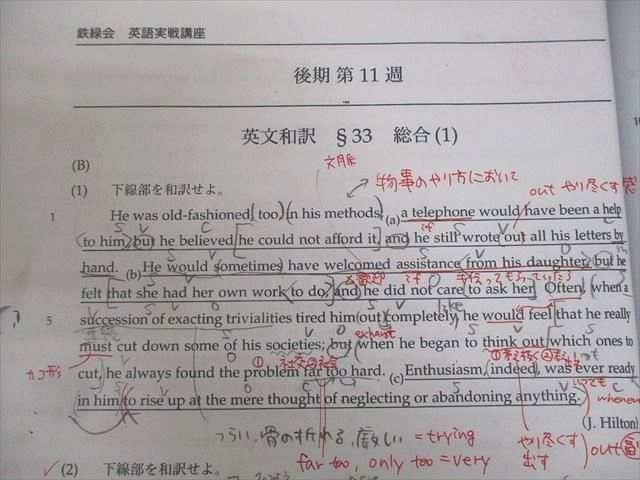 鉄緑会 英語実戦講座
後期 第 11 週
英文和訳 §33 総合 (1)
(B)
文脈
(1) 下線部を和訳せよ。
物事のやり方において
out やり尽くす
1 He was old-fashioned, too, in his methods; (a) a telephone would have been a help
S V C S if V
to him, but he believed he could not afford it, and he still wrote out all his letters by
hand. (b) He would sometimes have welcomed assistance from his daughter, but he
歓迎 if 手伝ってもらっていたら
felt that she had her own work to do, and he did not care to ask her. Often, when a
like
5 succession of exacting trivialities tired him out completely, he would feel that he really
exhaust
must cut down some of his societies; but when he began to think out which ones to
カコ形 ① 社交の社会
cut, he always found the problem far too hard. (c) Enthusiasm, indeed, was ever ready
いつでも
in him to rise up at the mere thought of neglecting or abandoning anything.
whenever
(J. Hilton)
つらい, 骨の折れる, 厳しい = trying
やり尽くす
出す
out
far too, only too = very
(2) 下線部を和訳せよ。